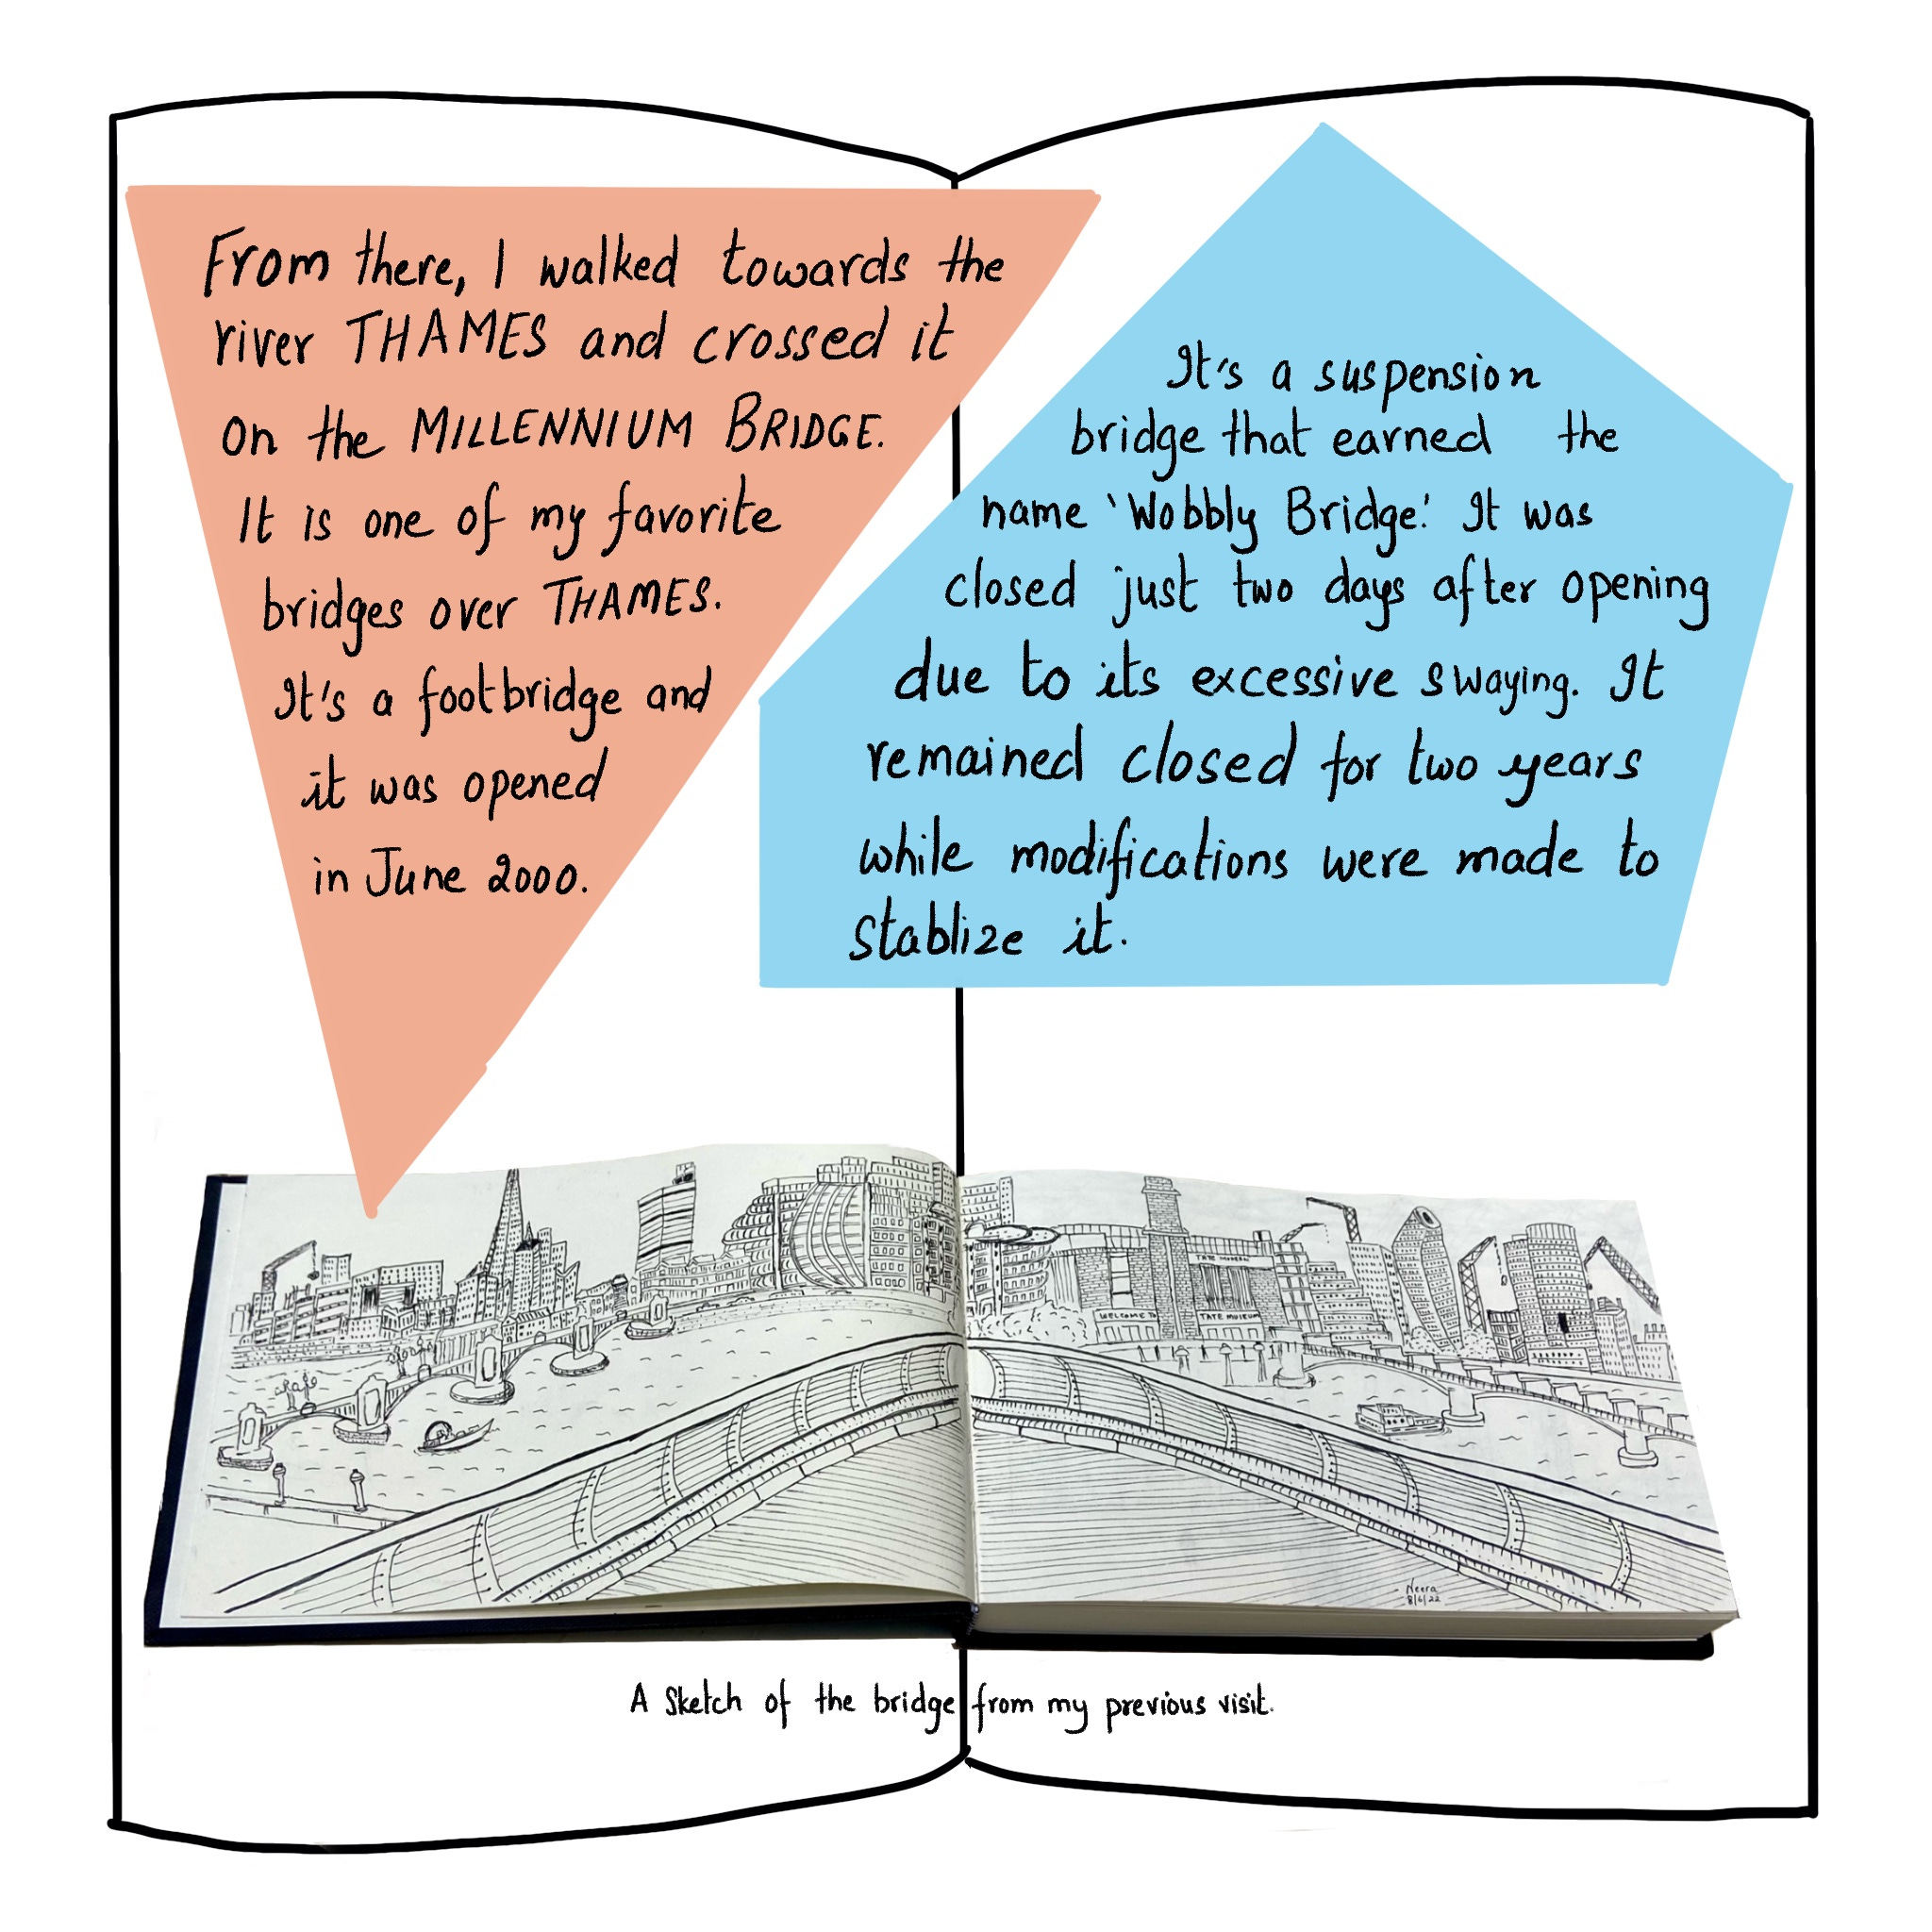 From there, I walked towards the
river THAMES and crossed it
on the MILLENNIUM BRIDGE.
It is one of my favorite
bridges over THAMES.
It's a footbridge and
it was opened
in June 2000.
It's a suspension
bridge that earned the
name 'Wobbly Bridge.' It was
closed just two days after opening
due to its excessive swaying. It
remained closed for two years
while modifications were made to
stablize it.
TATE MODERN
WELCOME
TATE MUSEUM
Neera
8/6/22
A sketch of the bridge from my previous visit.